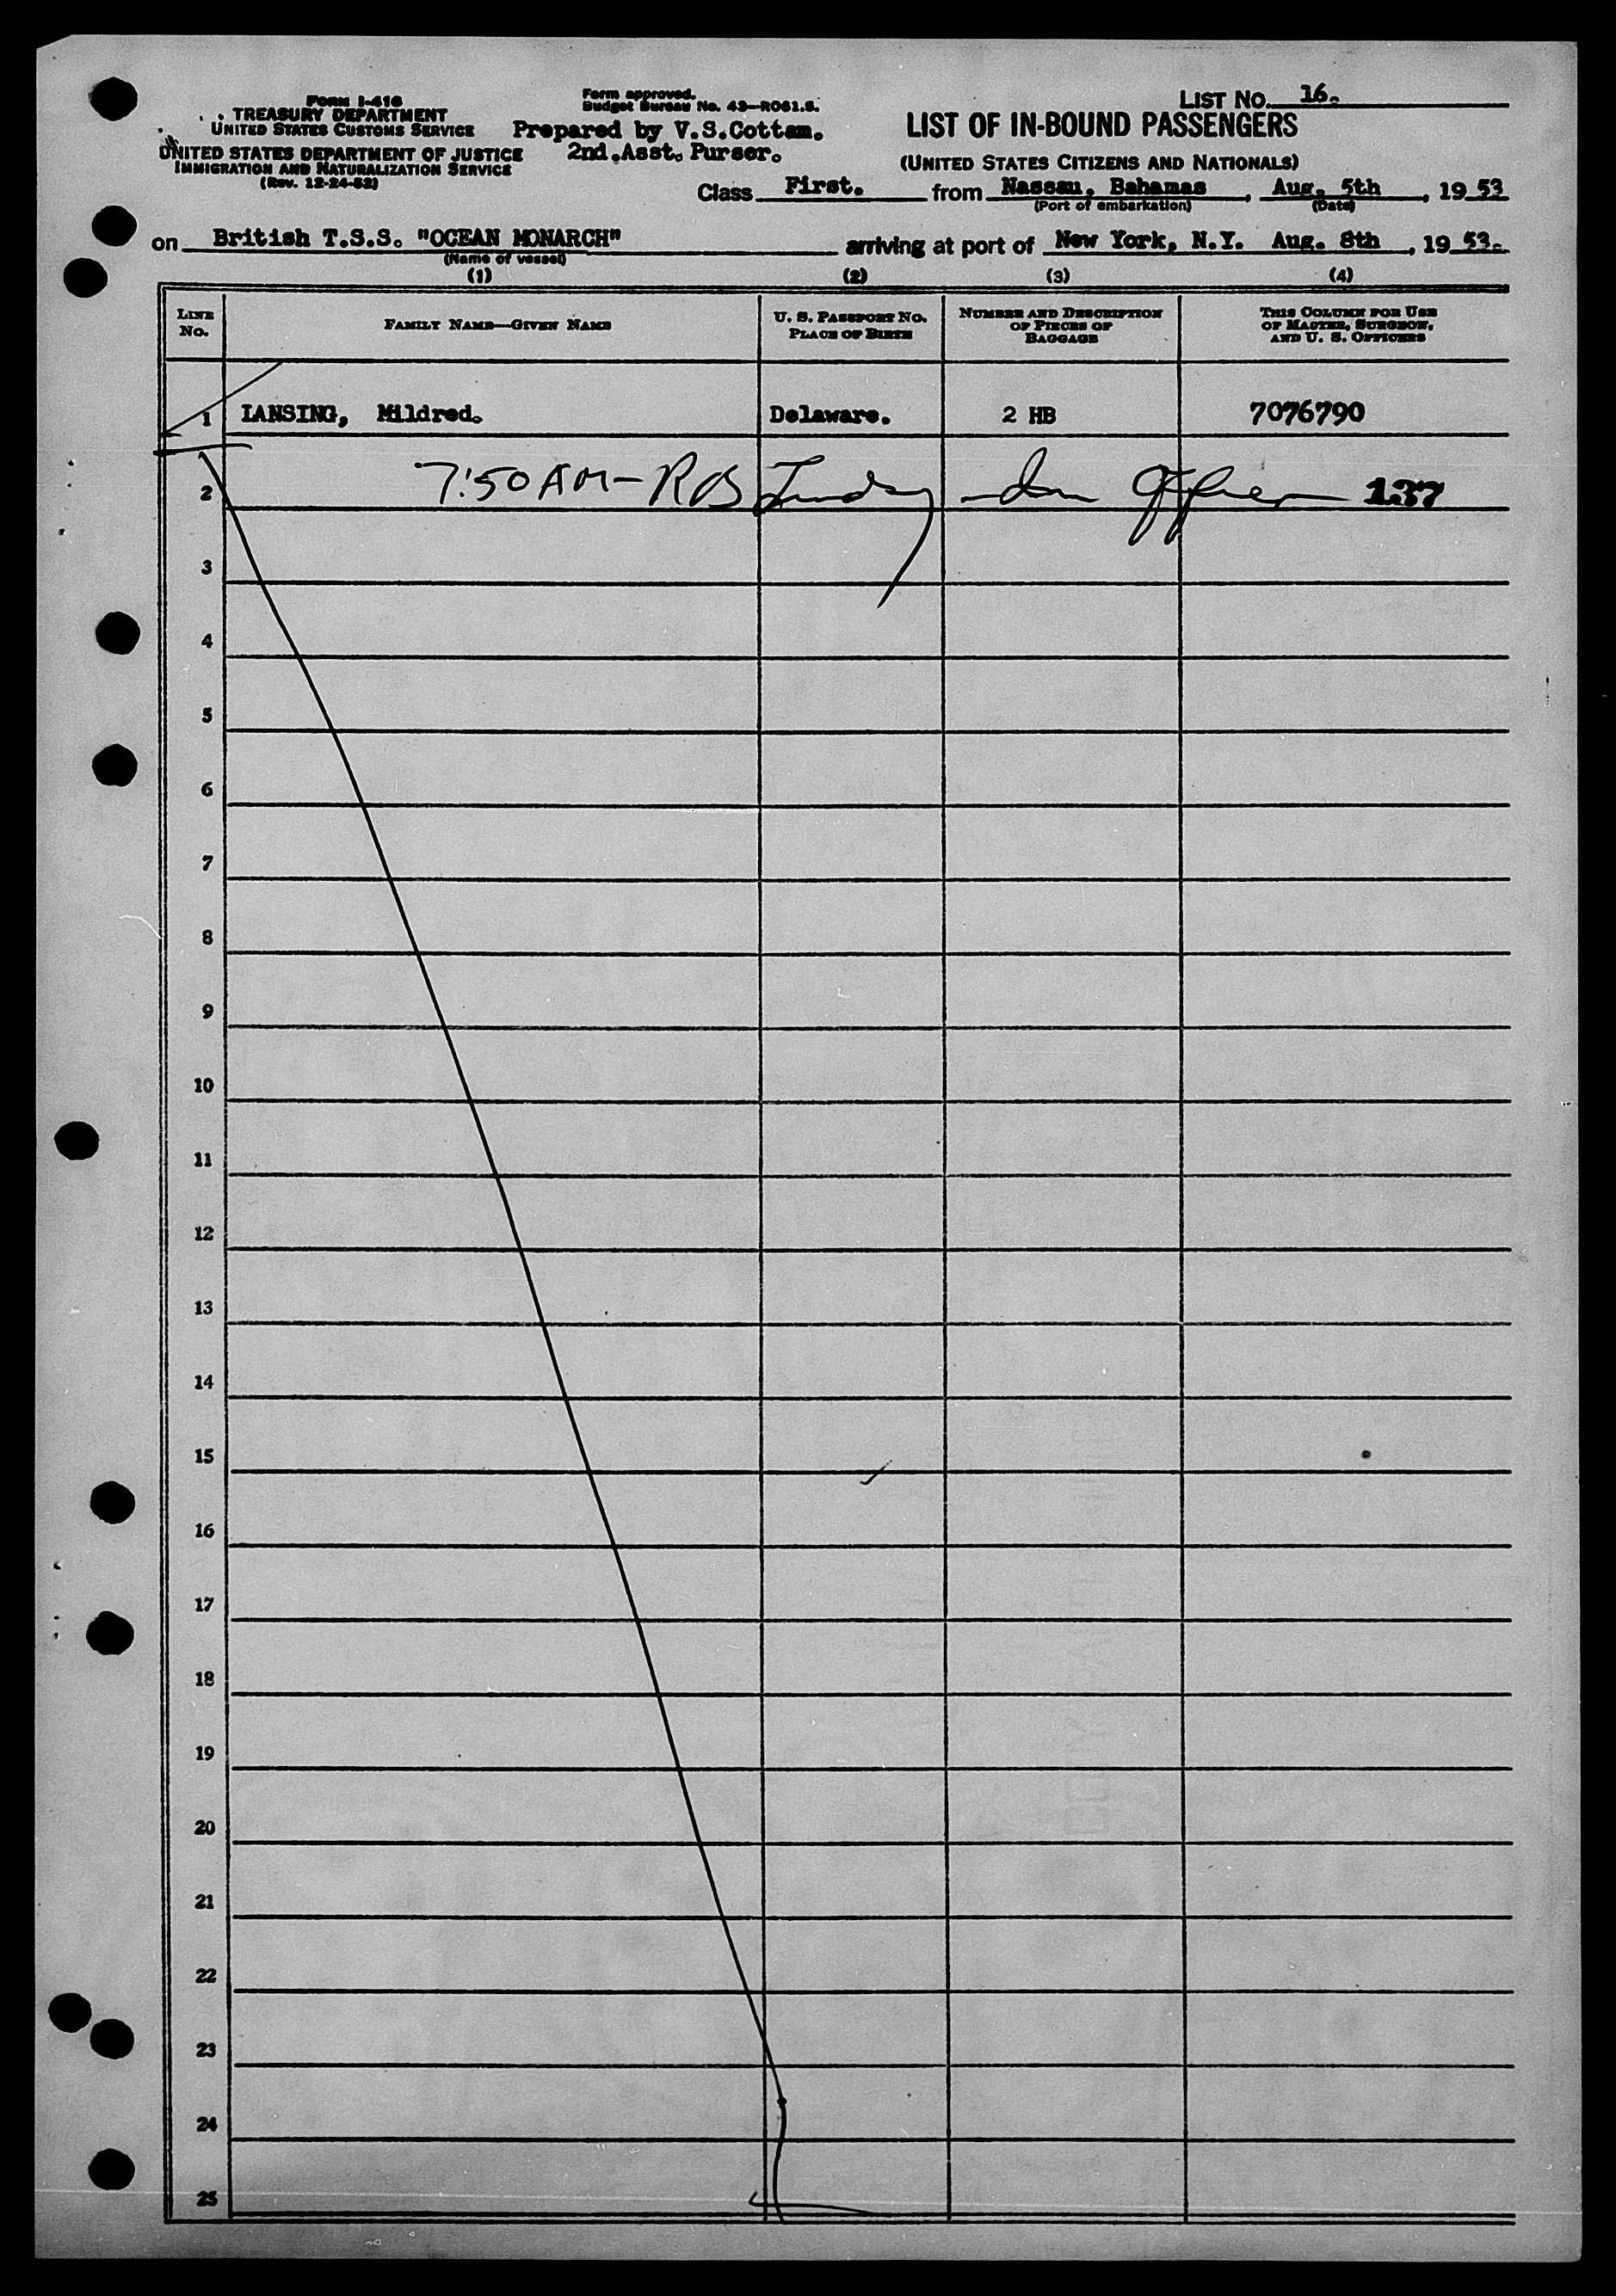 LIST NO. 16.
Form I-418
TREASURY DEPARTMENT
UNITED STATES CUSTOMS SERVICE
UNITED STATES DEPARTMENT OF JUSTICE
IMMIGRATION AND NATURALIZATION SERVICE
(Rev. 12-24-52)
Form approved.
Budget Bureau No. 43—R061.5.
Prepared by V.S.Cottam.
2nd.Asst. Purser.
LIST OF IN-BOUND PASSENGERS
(UNITED STATES CITIZENS AND NATIONALS)
Class First. from Nassau, Bahamas, Aug. 5th, 1953
(Port of embarkation) (Date)
on British T.S.S. "OCEAN MONARCH" arriving at port of New York, N.Y. Aug. 8th, 1953.
(Name of vessel)
(1) (2) (3) (4)
LINE NO. FAMILY NAME—GIVEN NAME U. S. PASSPORT NO. PLACE OF BIRTH NUMBER AND DESCRIPTION OF PIECES OF BAGGAGE THIS COLUMN FOR USE OF MASTER, SURGEON, AND U. S. OFFICERS
1 LANSING, Mildred. Delaware. 2 HB 7076790
2 7:50 AM - Lindsay - Imm Officer 137
3
4
5
6
7
8
9
10
11
12
13
14
15
16
17
18
19
20
21
22
23
24
25